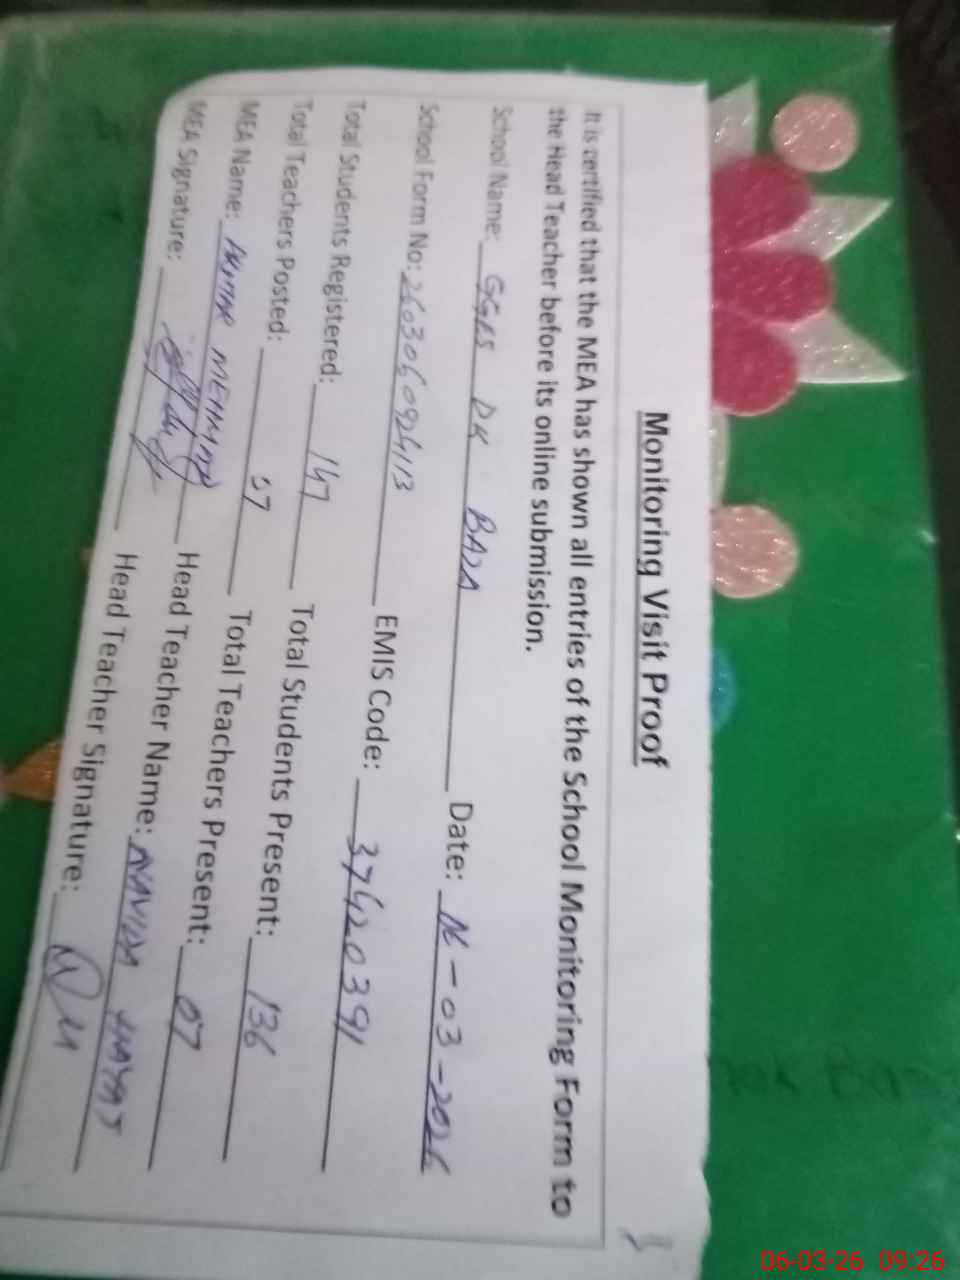 Monitoring Visit Proof
It is certified that the MEA has shown all entries of the School Monitoring Form to
the Head Teacher before its online submission.
School Name: GGES DK BADA Date: -03-2026
School Form No: EMIS Code: 37420391
Total Students Registered: 147 Total Students Present: 136
Total Teachers Posted: 07 Total Teachers Present: 07
MEA Name: MEHMOOD Head Teacher Name: NAVIDA HAYAT
MEA Signature: Head Teacher Signature:
06-03-26 09:26